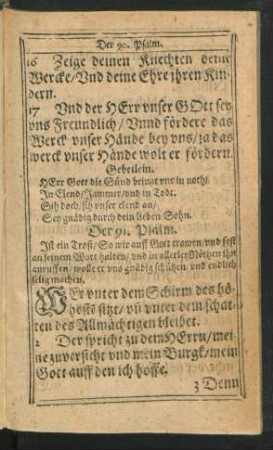 Der 90. Psalm.
16 Zeige deinen Knechten deine
Wercke/Vnd deine Ehre jhren Kin-
dern.
17 Vnd der HErr vnser GOtt sey
vns Freundlich/ Vnnd fördere das
Werck vnser Hände bey vns/ja das
werck vnser Hände wolt er fördern.
Gebetlein.
HErr Gott die Sünd bringt vns in noth/
In Elend/Jammer/vnd in Todt.
Sih doch/sih vnser elend an/
Sey gnädig durch dein lieben Sohn.
Der 91. Psalm.
Ist ein Trost/So wir auff Gott trawen/vnd fest
an seinem Wort halten/vnd in allerley Nöthen jhn
anruffen/wolle er vns gnädig schützen vnd endlich
selig machen.
WEr vnter dem Schirm des hö-
hests sitzt/vñ vnter dem schat-
ten des Allmächtigen bleibet.
2 Der spricht zu dem HErrn/mei-
ne zuversicht vnd mein Burgk/mein
Gott auff den ich hoffe.
3 Denn